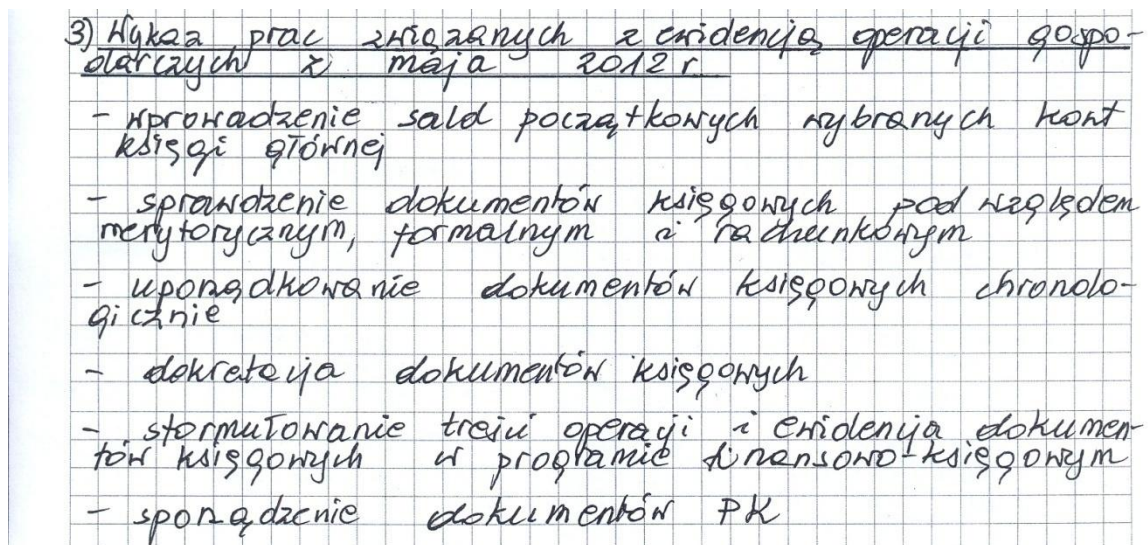 3) Wykaz prac związanych z ewidencją operacji gospo-
darczych z maja 2012 r.
- wprowadzenie sald początkowych wybranych kont
księgi głównej
- sprawdzenie dokumentów księgowych pod względem
merytorycznym, formalnym i rachunkowym
- uporządkowanie dokumentów księgowych chronolo-
gicznie
- dekretacja dokumentów księgowych
- sformułowanie treści operacji i ewidencja dokumen-
tów księgowych w programie finansowo-księgowym
- sporządzenie dokumentów PK